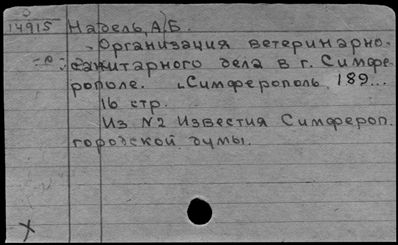 14915 Надель, А.Б.
Организация ветеринарно-
санитарного дела в г. Симфе-
рополе. Симферополь, 189...
16 стр.
Из №2 Известия Симфероп.
городской думы.